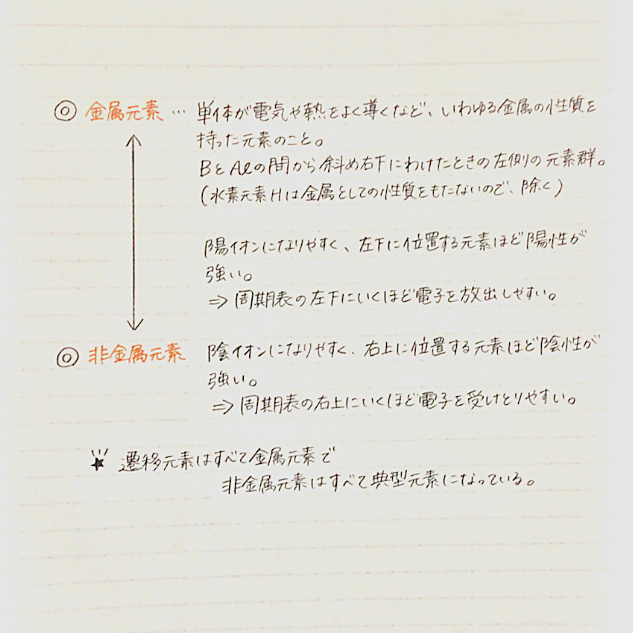 ◎ 金属元素 … 単体が電気や熱をよく導くなど、いわゆる金属の性質を
持った元素のこと。
BとAlの間から斜め右下にわけたときの左側の元素群。
(水素元素Hは金属としての性質をもたないので、除く)
陽イオンになりやすく、左下に位置する元素ほど陽性が
強い。
⇒ 周期表の左下にいくほど電子を放出しやすい。
◎ 非金属元素 陰イオンになりやすく、右上に位置する元素ほど陰性が
強い。
⇒ 周期表の右上にいくほど電子を受けとりやすい。
★ 遷移元素はすべて金属元素で
非金属元素はすべて典型元素になっている。